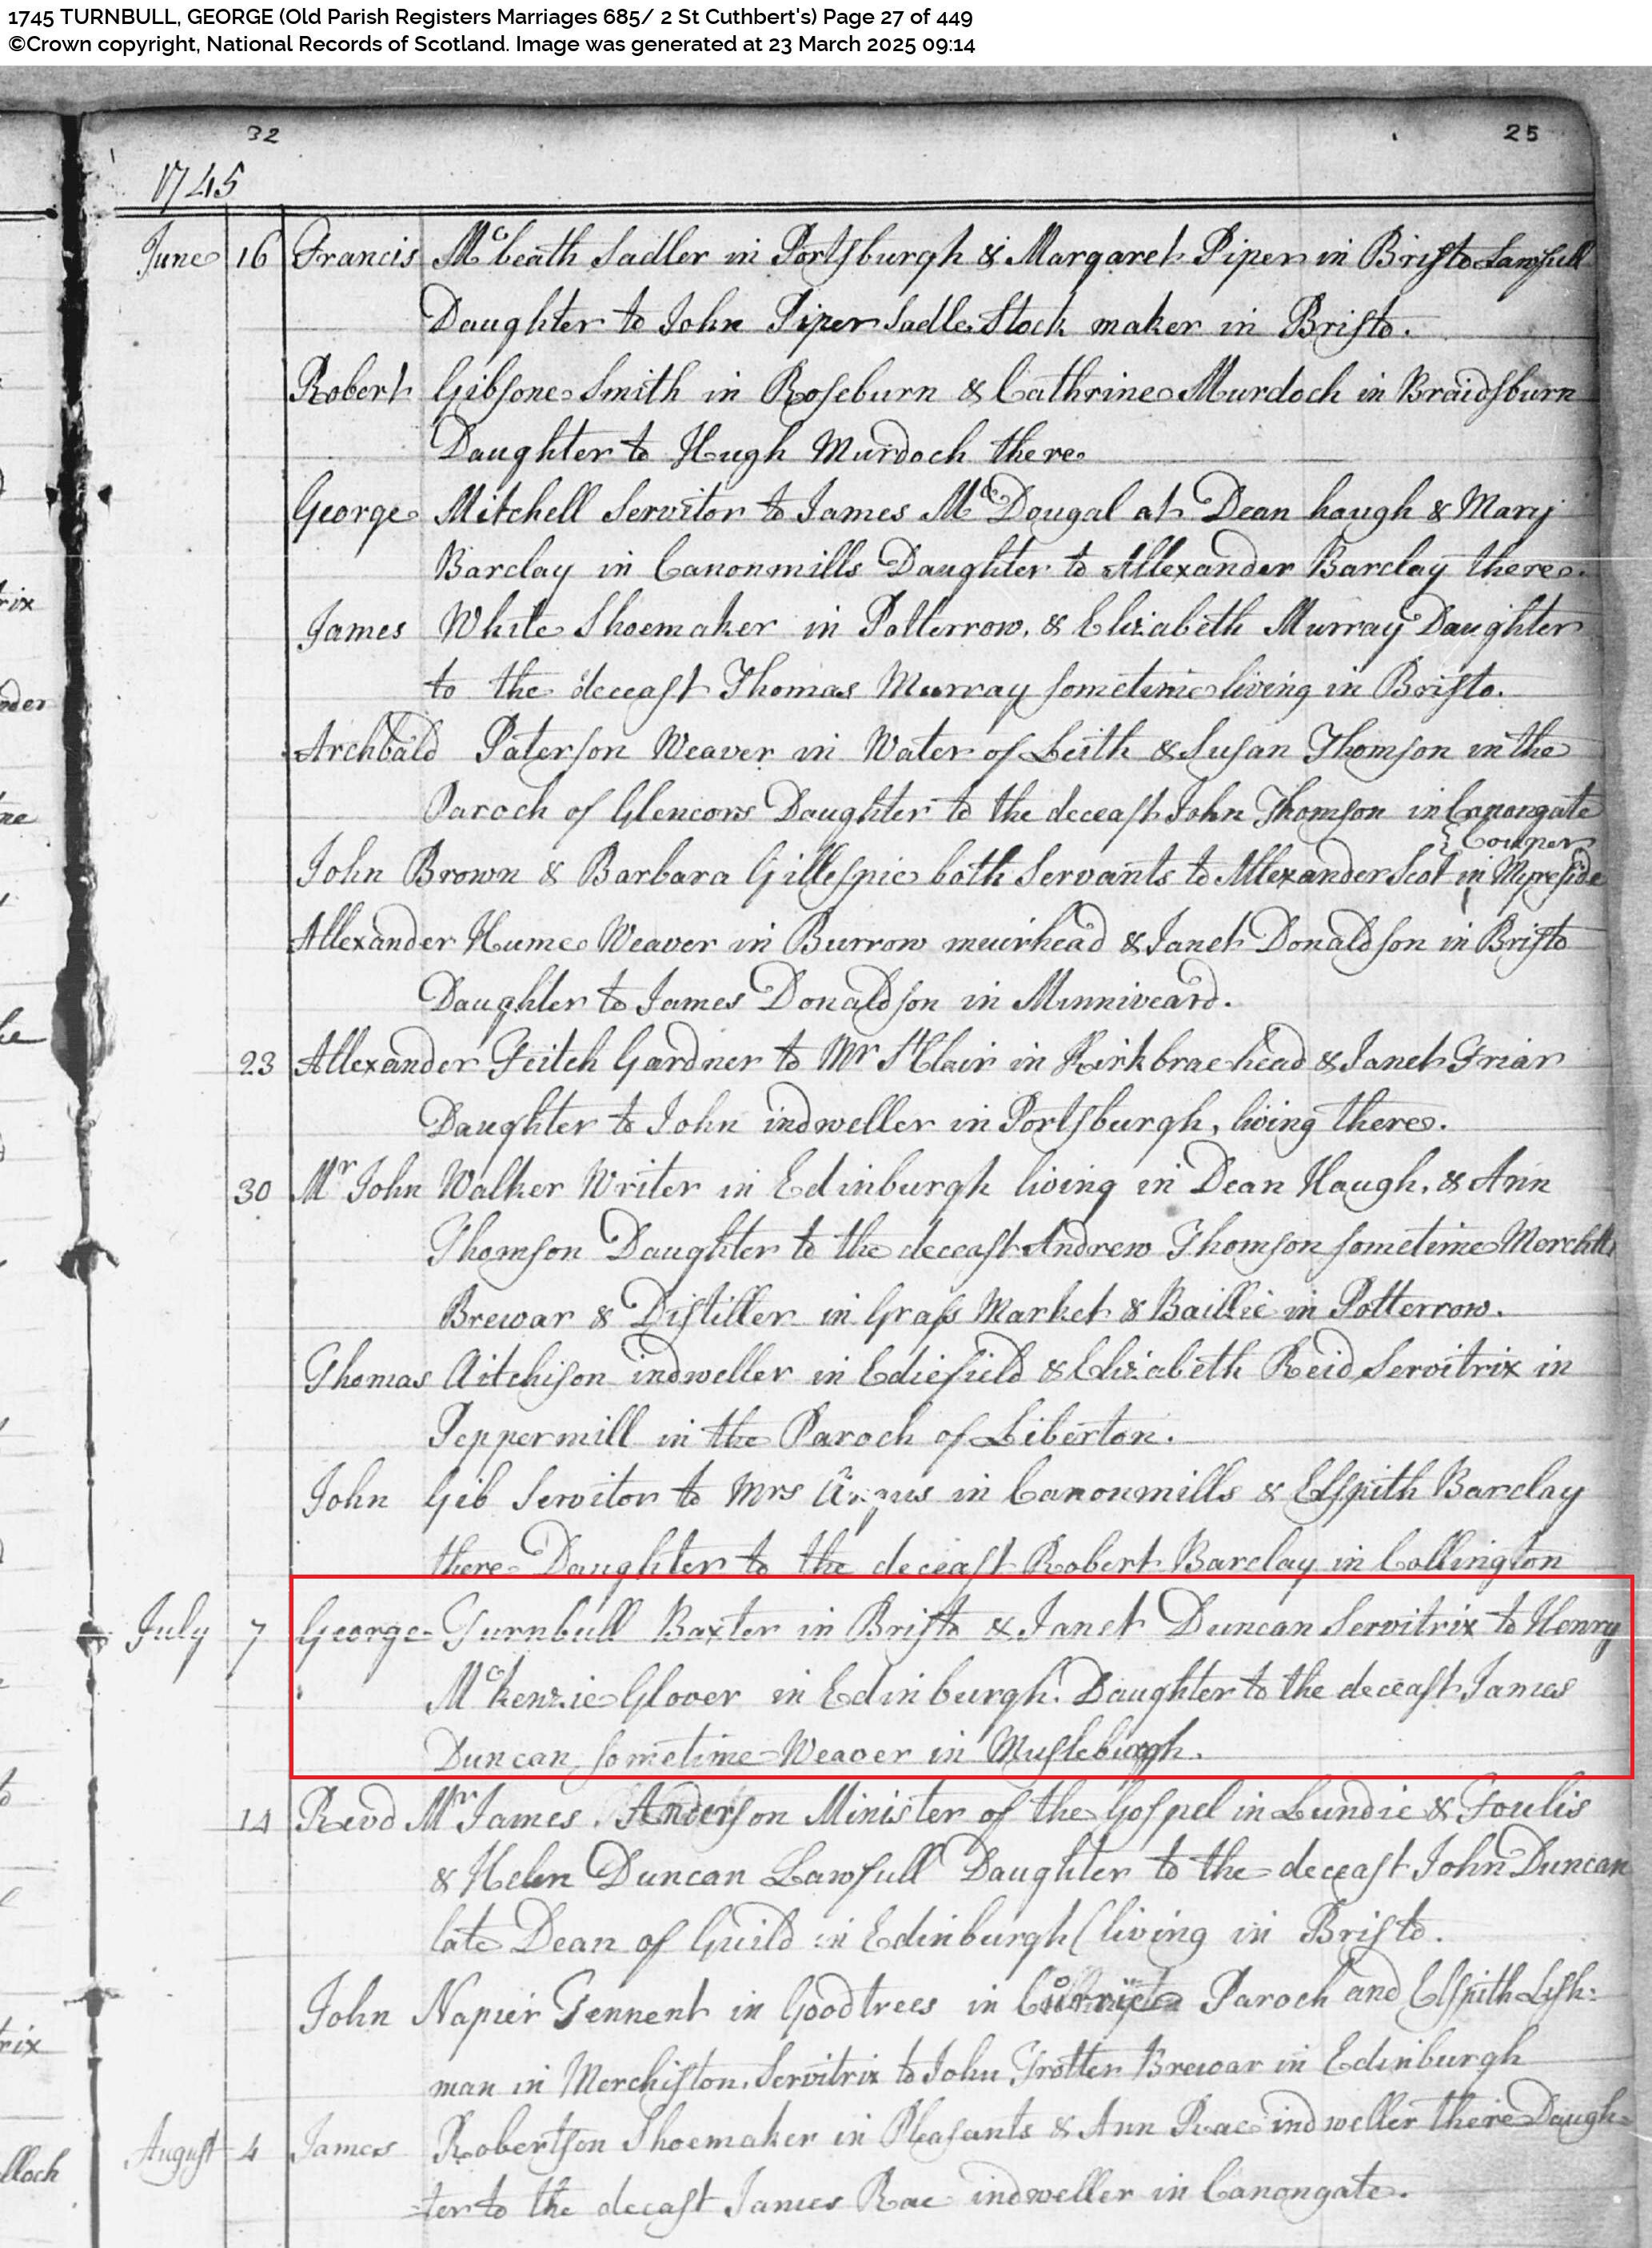 1745 TURNBULL, GEORGE (Old Parish Registers Marriages 685/ 2 St Cuthbert's) Page 27 of 449
©Crown copyright, National Records of Scotland. Image was generated at 23 March 2025 09:14
32 25
1745
June 16 Francis Mcbeath Sadler in Portsburgh & Margaret Piper in Bristo Lawfull
Daughter to John Piper Sadle Stock maker in Bristo.
Robert Gibsone Smith in Roseburn & Cathrine Murdoch in Braidsburn
Daughter to Hugh Murdoch there
George Mitchell Servitor to James McDougal at Dean haugh & Mary
Barclay in Canonmills Daughter to Allexander Barclay there.
James White Shoemaker in Potterrow, & Elizabeth Murray Daughter
to the deceast Thomas Murray sometime living in Bristo.
Archbald Paterson Weaver in Water of Leith & Susan Thomson in the
Paroch of Glencors Daughter to the deceast John Thomson in Canongate
Couper
John Brown & Barbara Gillespie both Servants to Allexander Scot in Myreside
Allexander Hume Weaver in Burrow muirhead & Janet Donaldson in Bristo
Daughter to James Donaldson in Minniveard.
23 Allexander Feitch Gardner to Mr St Clair in Kirkbraehead & Janet Friar
Daughter to John indweller in Portsburgh, living there.
30 Mr John Walker Writer in Edinburgh living in Dean Haugh, & Ann
Thomson Daughter to the deceast Andrew Thomson sometime Mercht
Brewar & Distiller in Grass Market & Baillie in Potterrow.
Thomas Aitchison indweller in Ediefield & Elizabeth Reid Servitrix in
Peppermill in the Paroch of Liberton.
John Gib Servitor to Mrs Angus in Canonmills & Elspith Barclay
there Daughter to the deceast Robert Barclay in Collington
July 7 George Turnbull Baxter in Bristo & Janet Duncan Servitrix to Henry
Mckenzie Glover in Edinburgh. Daughter to the deceast James
Duncan, sometime Weaver in Musleburgh.
14 Revd Mr James Anderson Minister of the Gospel in Lundie & Foulis
& Helen Duncan Lawfull Daughter to the deceast John Duncan
late Dean of Guild in Edinburgh (living in Bristo.
John Napier Tennent in Goodtrees in Paroch and Elspith Lish:
man in Merchiston, Servitrix to John Trotter Brewar in Edinburgh
August 4 James Robertson Shoemaker in Pleasants & Ann Rae indweller there Daugh=
=ter to the decast James Rae indweller in Canongate.